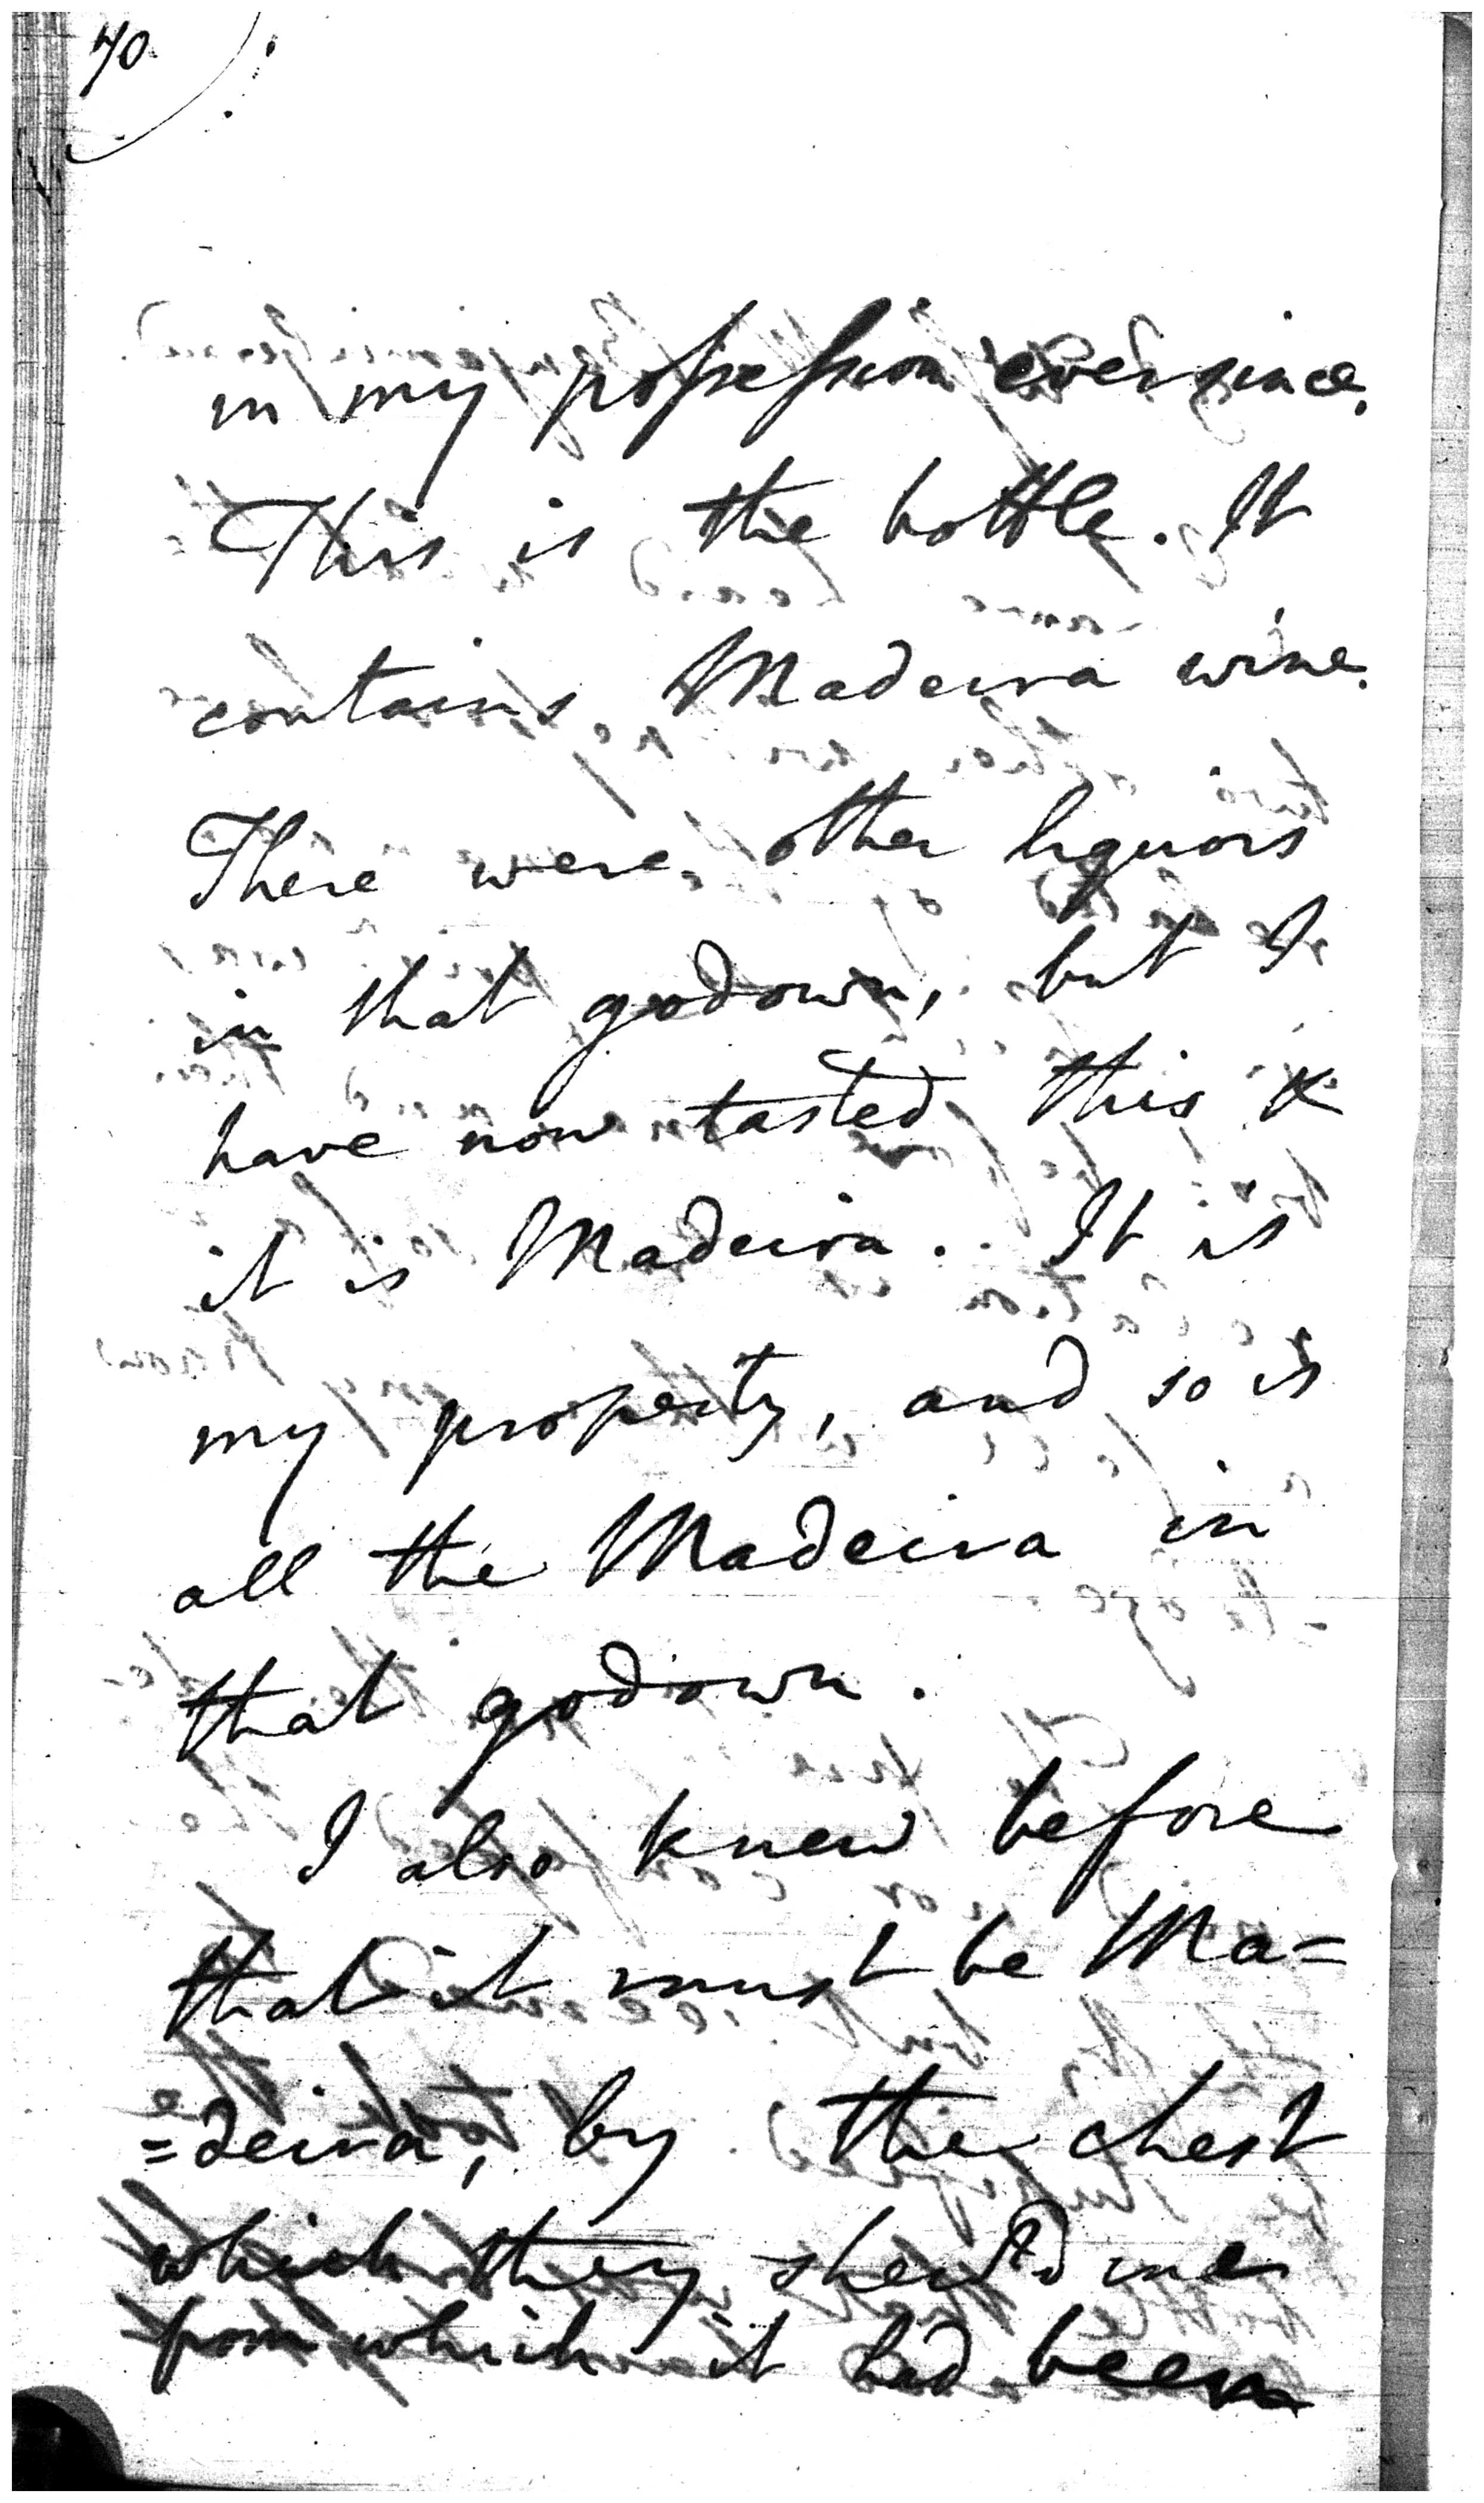 70
in my possession ever since.
This is the bottle. It
contains Madeira wine.
There were other liquors
in that godown, but I
have now tasted this &
it is Madeira. It is
my property, and so is
all the Madeira in
that godown.
I also knew before
that it must be Ma=
=deira, by the chest
which they shew'd me
from which it had been